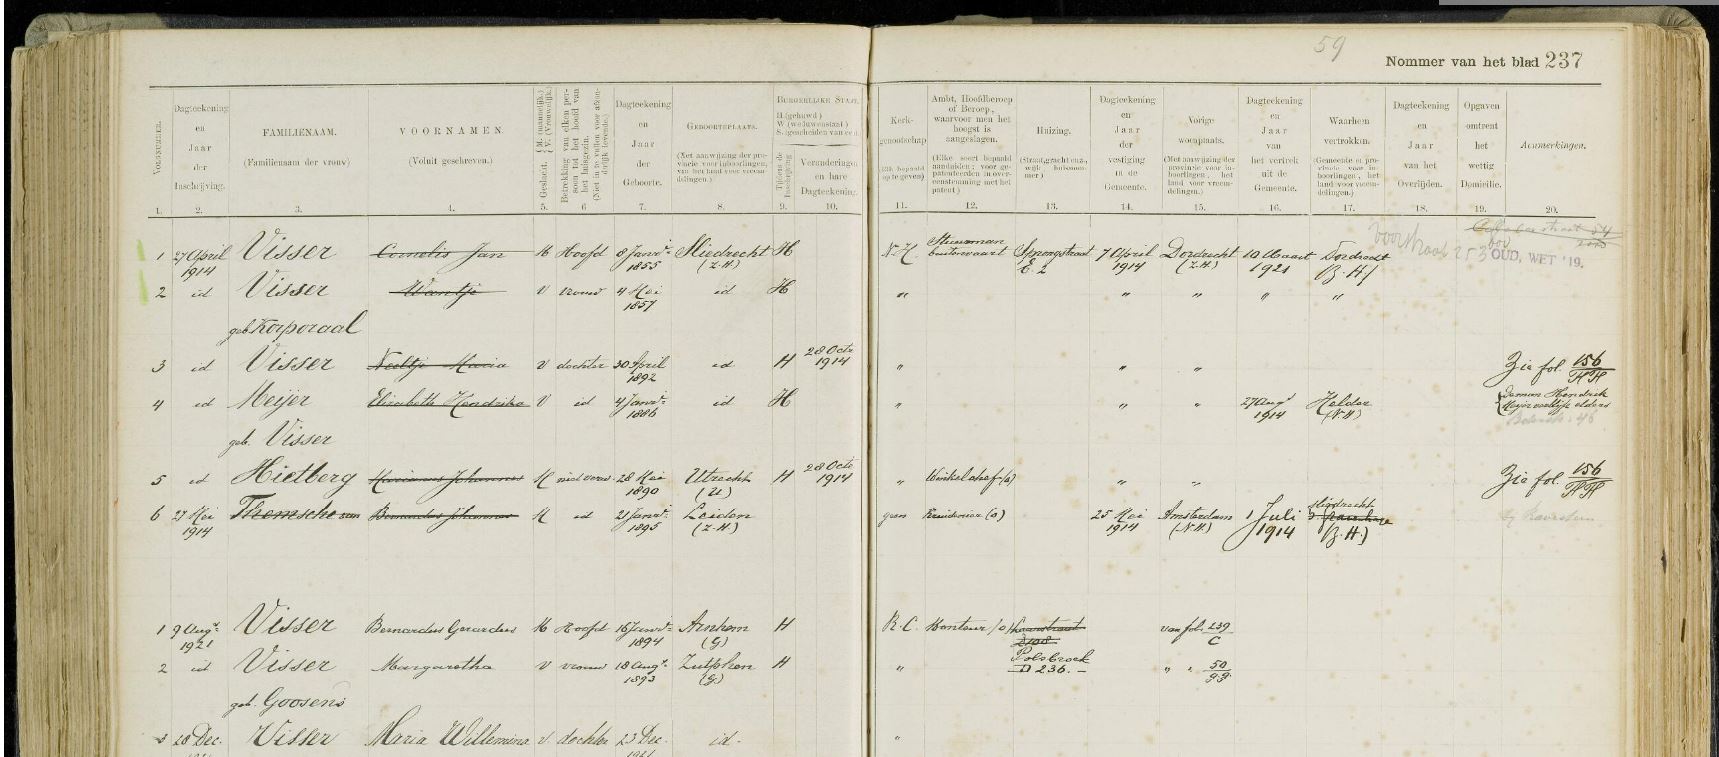 59
Nommer van het blad 237
VOLGNUMMER.
Dagteekening en Jaar der Inschrijving.
FAMILIENAAM.
(Familienaam der vrouw)
VOORNAMEN.
(Voluit geschreven.)
Geslacht. M. (mannelijk.) V. (Vrouwelijk.)
Betrekking van elken persoon tot het hoofd van het huisgezin. (Niet in te vullen voor afzonderlijk levende.)
Dagteekening en Jaar der Geboorte.
GEBOORTEPLAATS.
(Met aanwijzing der provincie voor inboorlingen, van het land voor vreemdelingen.)
BURGERLIJKE STAAT.
H. (gehuwd)
W. (weduwenstaat)
S. (gescheiden van echt)
Tijdens de Inschrijving
Veranderingen en hare Dagteekening.
Kerkgenootschap
(Elk bepaald op te geven)
Ambt, Hoofdberoep of Beroep, waarvoor men het hoogst is aangeslagen.
(Elke soort bepaald aanduiden; voor gepatenteerden in overeenstemming met het patent)
Huizing.
(Straat, gracht enz., wijk, huisnummer)
Dagteekening en Jaar der vestiging in de Gemeente.
Vorige woonplaats.
(Met aanwijzing der provincie voor inboorlingen, het land voor vreemdelingen.)
Dagteekening en Jaar van het vertrek uit de Gemeente.
Waarheen vertrokken.
Gemeente en provincie voor inboorlingen, het land voor vreemdelingen.)
Dagteekening en Jaar van het Overlijden.
Opgaven omtrent het wettig Domicilie.
Aanmerkingen.
1. 2. 3. 4. 5. 6 7. 8. 9. 10. 11. 12. 13. 14. 15. 16. 17. 18. 19. 20.
Voorstraat 253
OUD, WET '19.
1 27 April 1914 Visser Cornelis Jan M Hoofd 8 Janri 1855 Sliedrecht (Z.H.) H N.H. Stuurman buitenvaart Sprongstraat E 2 7 April 1914 Dordrecht (Z.H.) 10 Maart 1921 Dordrecht (Z.H.)
2 id Visser Wentje V vrouw 4 Mei 1857 id H " " " " "
geb. Korporaal
3 id Visser Neeltje Maria V dochter 30 April 1892 id H 28 Octr 1914 " " " Zie fol. 156 HH
4 id Meijer Elizabeth Hendrika V id 4 Janri 1886 id H " " " 27 Augs 1914 Helder (N.H.) De man Hendrik Meijer verblijft elders
geb. Visser
5 id Hietberg Marinus Johannes M niet verw. 28 Mei 1890 Utrecht (U) H 28 Octr 1914 " Winkelchef (o) " " Zie fol. 156 HH
6 27 Mei 1914 Themsche van Bernardus Johannes M id 21 Janri 1895 Leiden (Z.H.) geen Kruidenier (o) 25 Mei 1914 Amsterdam (N.H.) 1 Juli 1914 Sliedrecht (Z.H.)
1 9 Augs 1921 Visser Bernardus Gerardus M Hoofd 16 Janri 1894 Arnhem (G) H R.C. Monteur (o) Polsbroek D 236. van fol. 239 C
2 id Visser Margaretha V vrouw 18 Augs 1893 Zutphen (G) H " " " 50 gg
geb. Goosens
3 28 Dec. Visser Maria Willemina V dochter 23 Dec. id. "